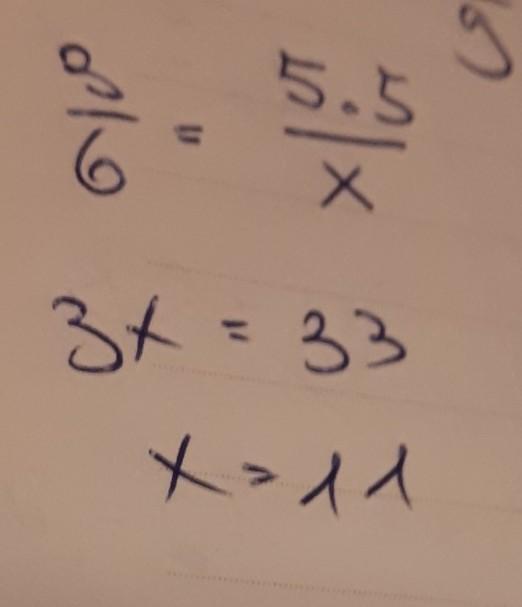 3/6 = 5.5/x
3x = 33
x = 11